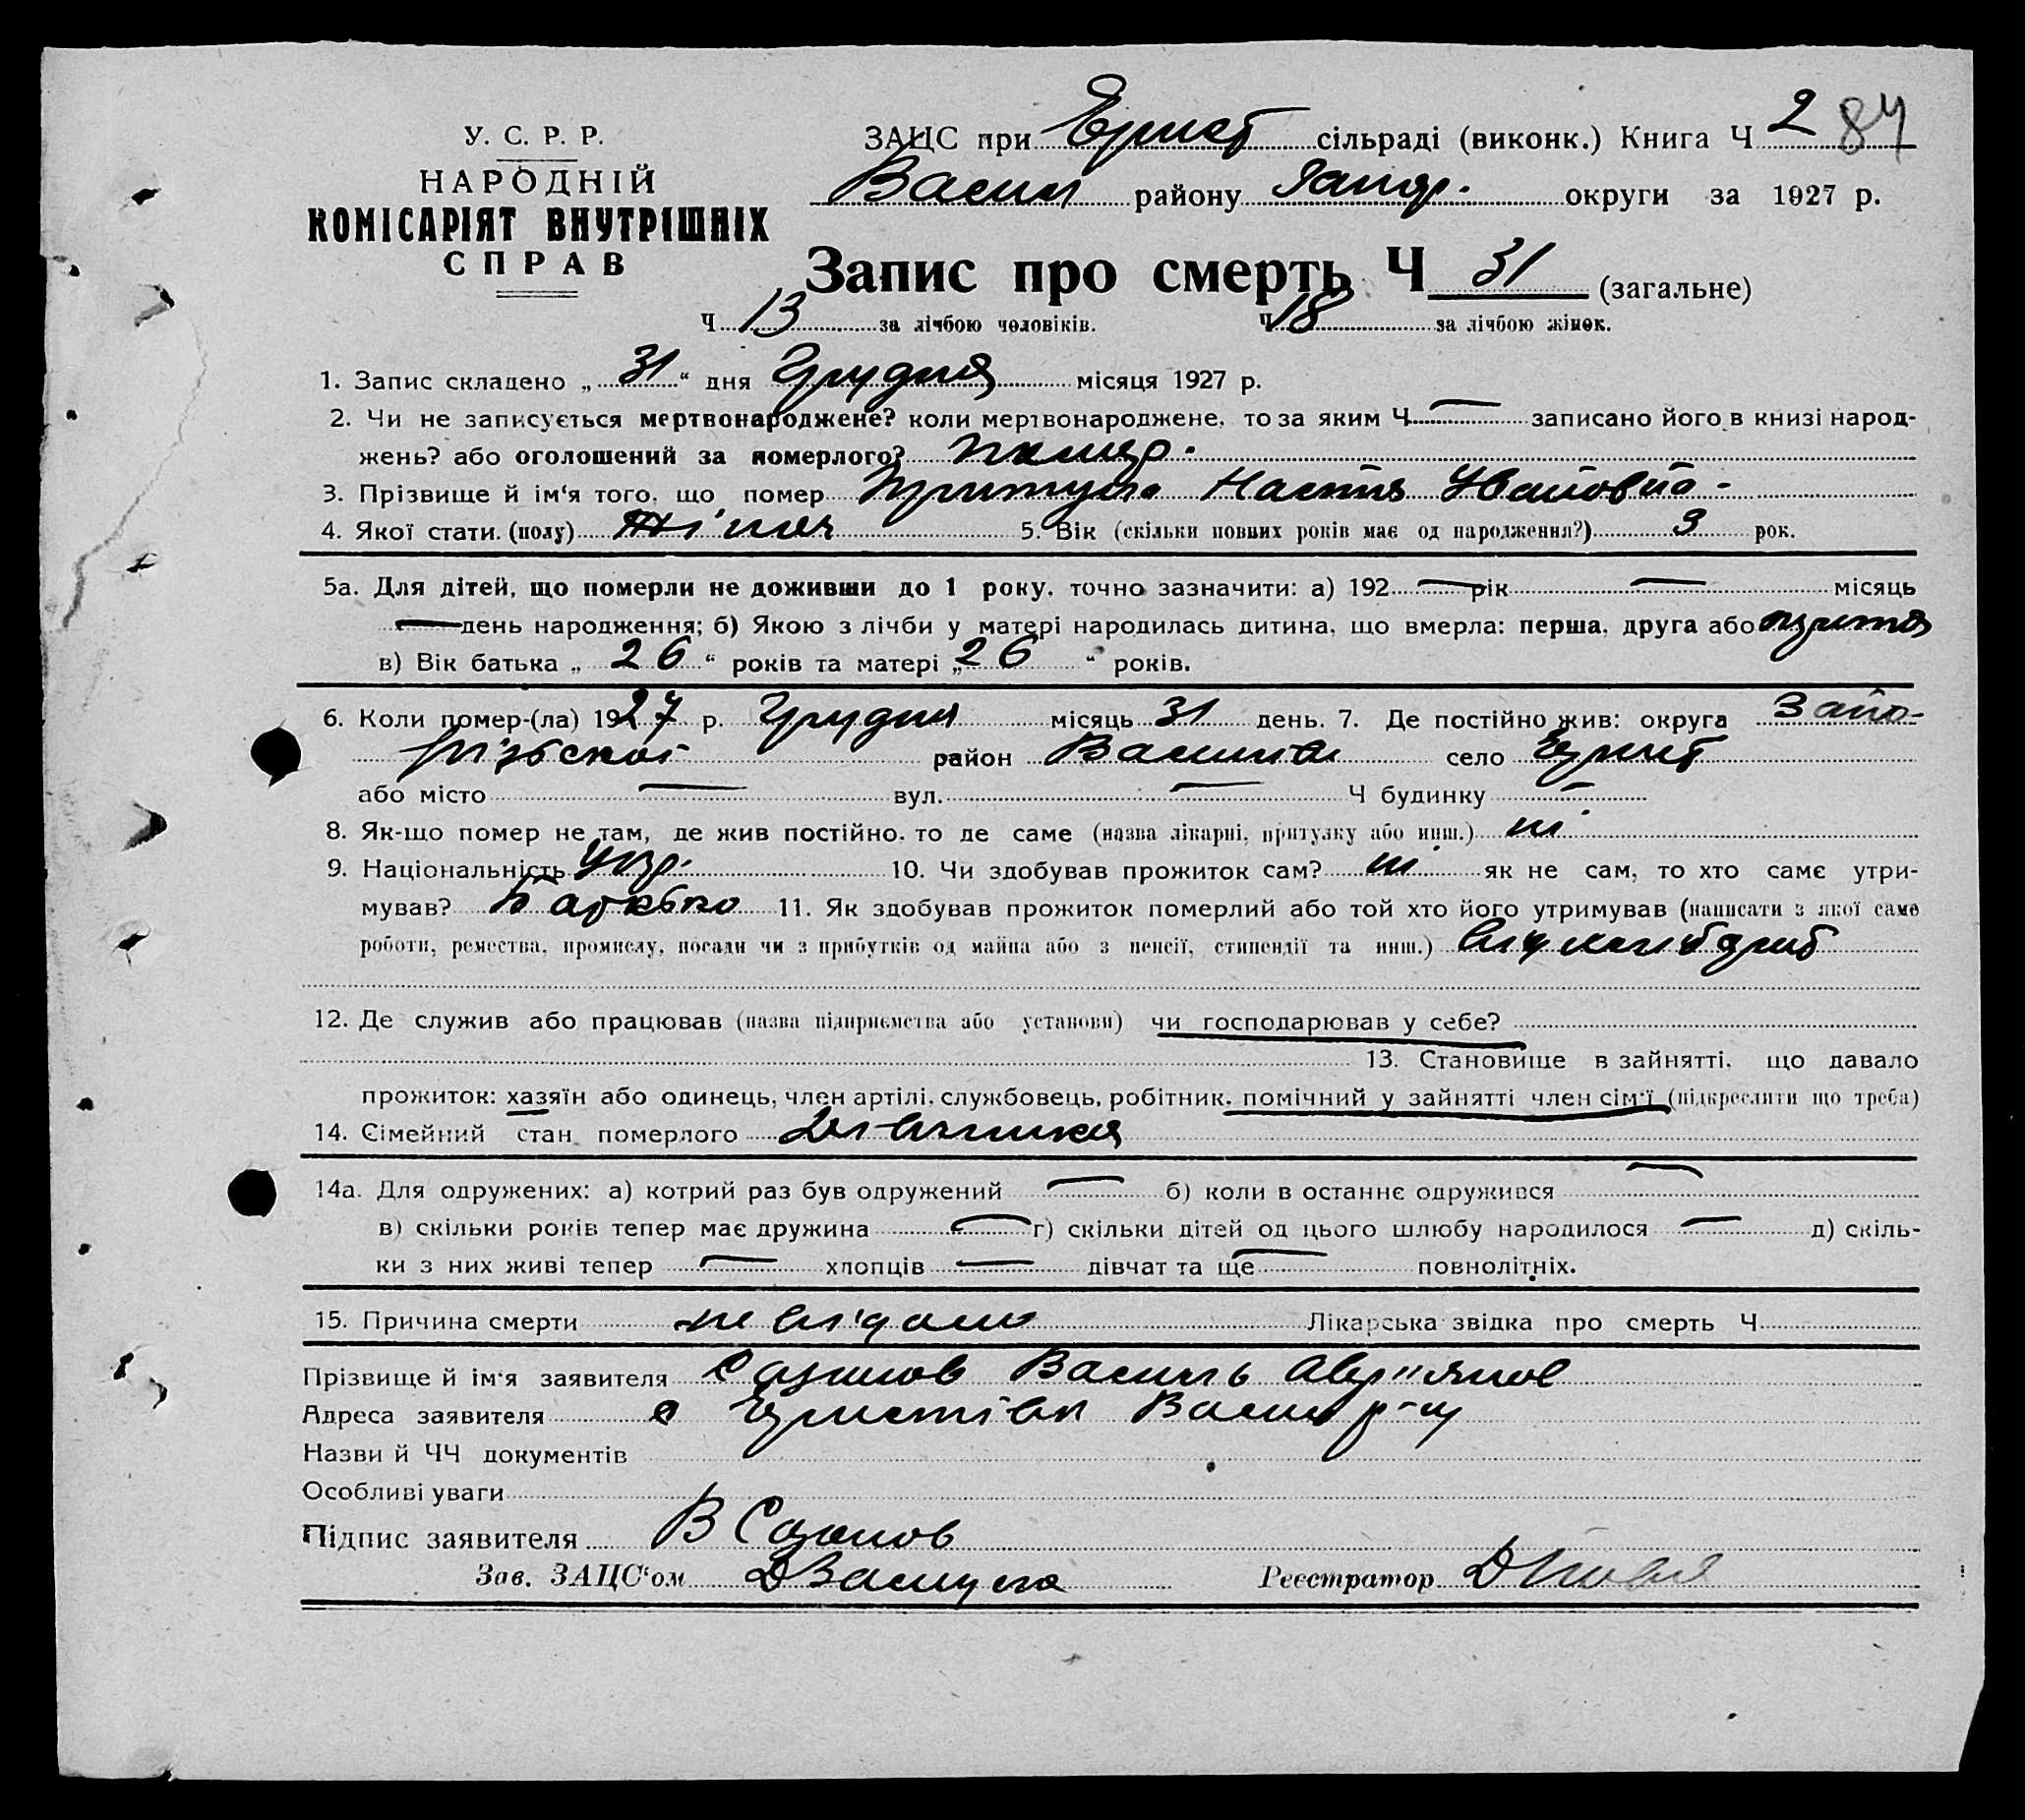 У. С. Р. Р.
НАРОДНІЙ
КОМІСАРІЯТ ВНУТРІШНІХ
СПРАВ
ЗАЦС при Ерист сільраді (виконк.) Книга Ч 2 84
Васил району Запор. округи за 1927 р.
Запис про смерть Ч 31 (загальне)
Ч 13 за лічбою чоловіків. Ч 18 за лічбою жінок.
1. Запис складено „31“ дня Грудня місяця 1927 р.
2. Чи не записується мертвонароджене? коли мертвонароджене, то за яким Ч — записано його в книзі народ-
жень? або оголошений за померлого? помер.
3. Прізвище й ім‘я того, що помер Притула Настя Ивановна -
4. Якої стати (полу) Жіноч 5. Вік (скільки повних років має од народження?) 3 рок.
5а. Для дітей, що померли не доживши до 1 року, точно зазначити: а) 192 — рік — місяць
— день народження; б) Якою з лічби у матері народилась дитина, що вмерла: перша, друга або третя
в) Вік батька „26“ років та матері „26“ років.
6. Коли помер-(ла) 1927 р. Грудня місяць 31 день. 7. Де постійно жив: округа Запо-
різської район Васильв село Ерист
або місто — вул. — Ч будинку —
8. Як-що помер не там, де жив постійно, то де саме (назва лікарні, притулку або инш.) ні
9. Національність Укр. 10. Чи здобував прожиток сам? ні як не сам, то хто саме утри-
мував? Батько 11. Як здобував прожиток померлий або той хто його утримував (написати з якої саме
роботи, ремества, промислу, посади чи з прибутків од майна або з пенсії, стипендії та инш.)
12. Де служив або працював (назва підприємства або установи) чи господарював у себе?
13. Становище в зайнятті, що давало
прожиток: хазяїн або одинець, член артілі, службовець, робітник, помічний у зайнятті член сім‘ї (підкреслити що треба)
14. Сімейний стан померлого Дівчинка
14а. Для одружених: а) котрий раз був одружений — б) коли в останнє одружився —
в) скільки років тепер має дружина — г) скільки дітей од цього шлюбу народилося — д) скіль-
ки з них живі тепер — хлопців — дівчат та ще — повнолітніх.
15. Причина смерти не відомо Лікарська звідка про смерть Ч
Прізвище й ім‘я заявителя Сазонов Василь
Адреса заявителя с Еристівк Васил р-ну
Назви й ЧЧ документів
Особливі уваги
Підпис заявителя В Сазонов
Зав. ЗАЦС‘ом
Реєстратор